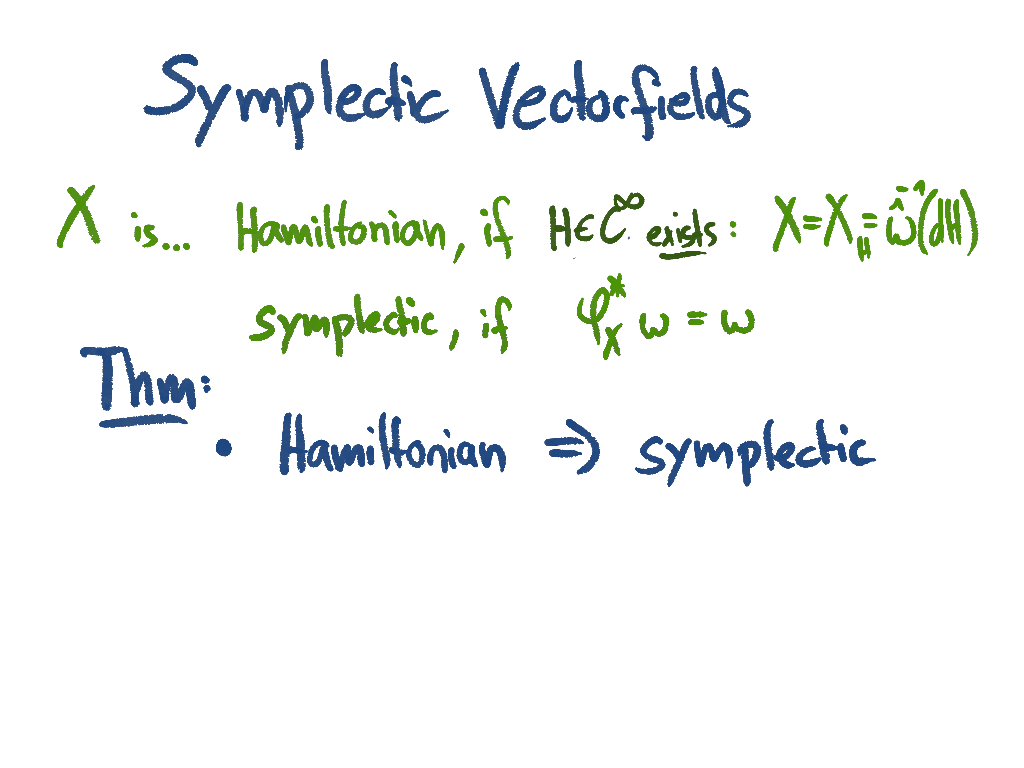 Symplectic Vectorfields
X is... Hamiltonian, if H∈C^∞ exists: X=X_H=ω̂⁻¹(dH)
symplectic, if φ_X^* ω = ω
Thm:
• Hamiltonian ⇒ symplectic